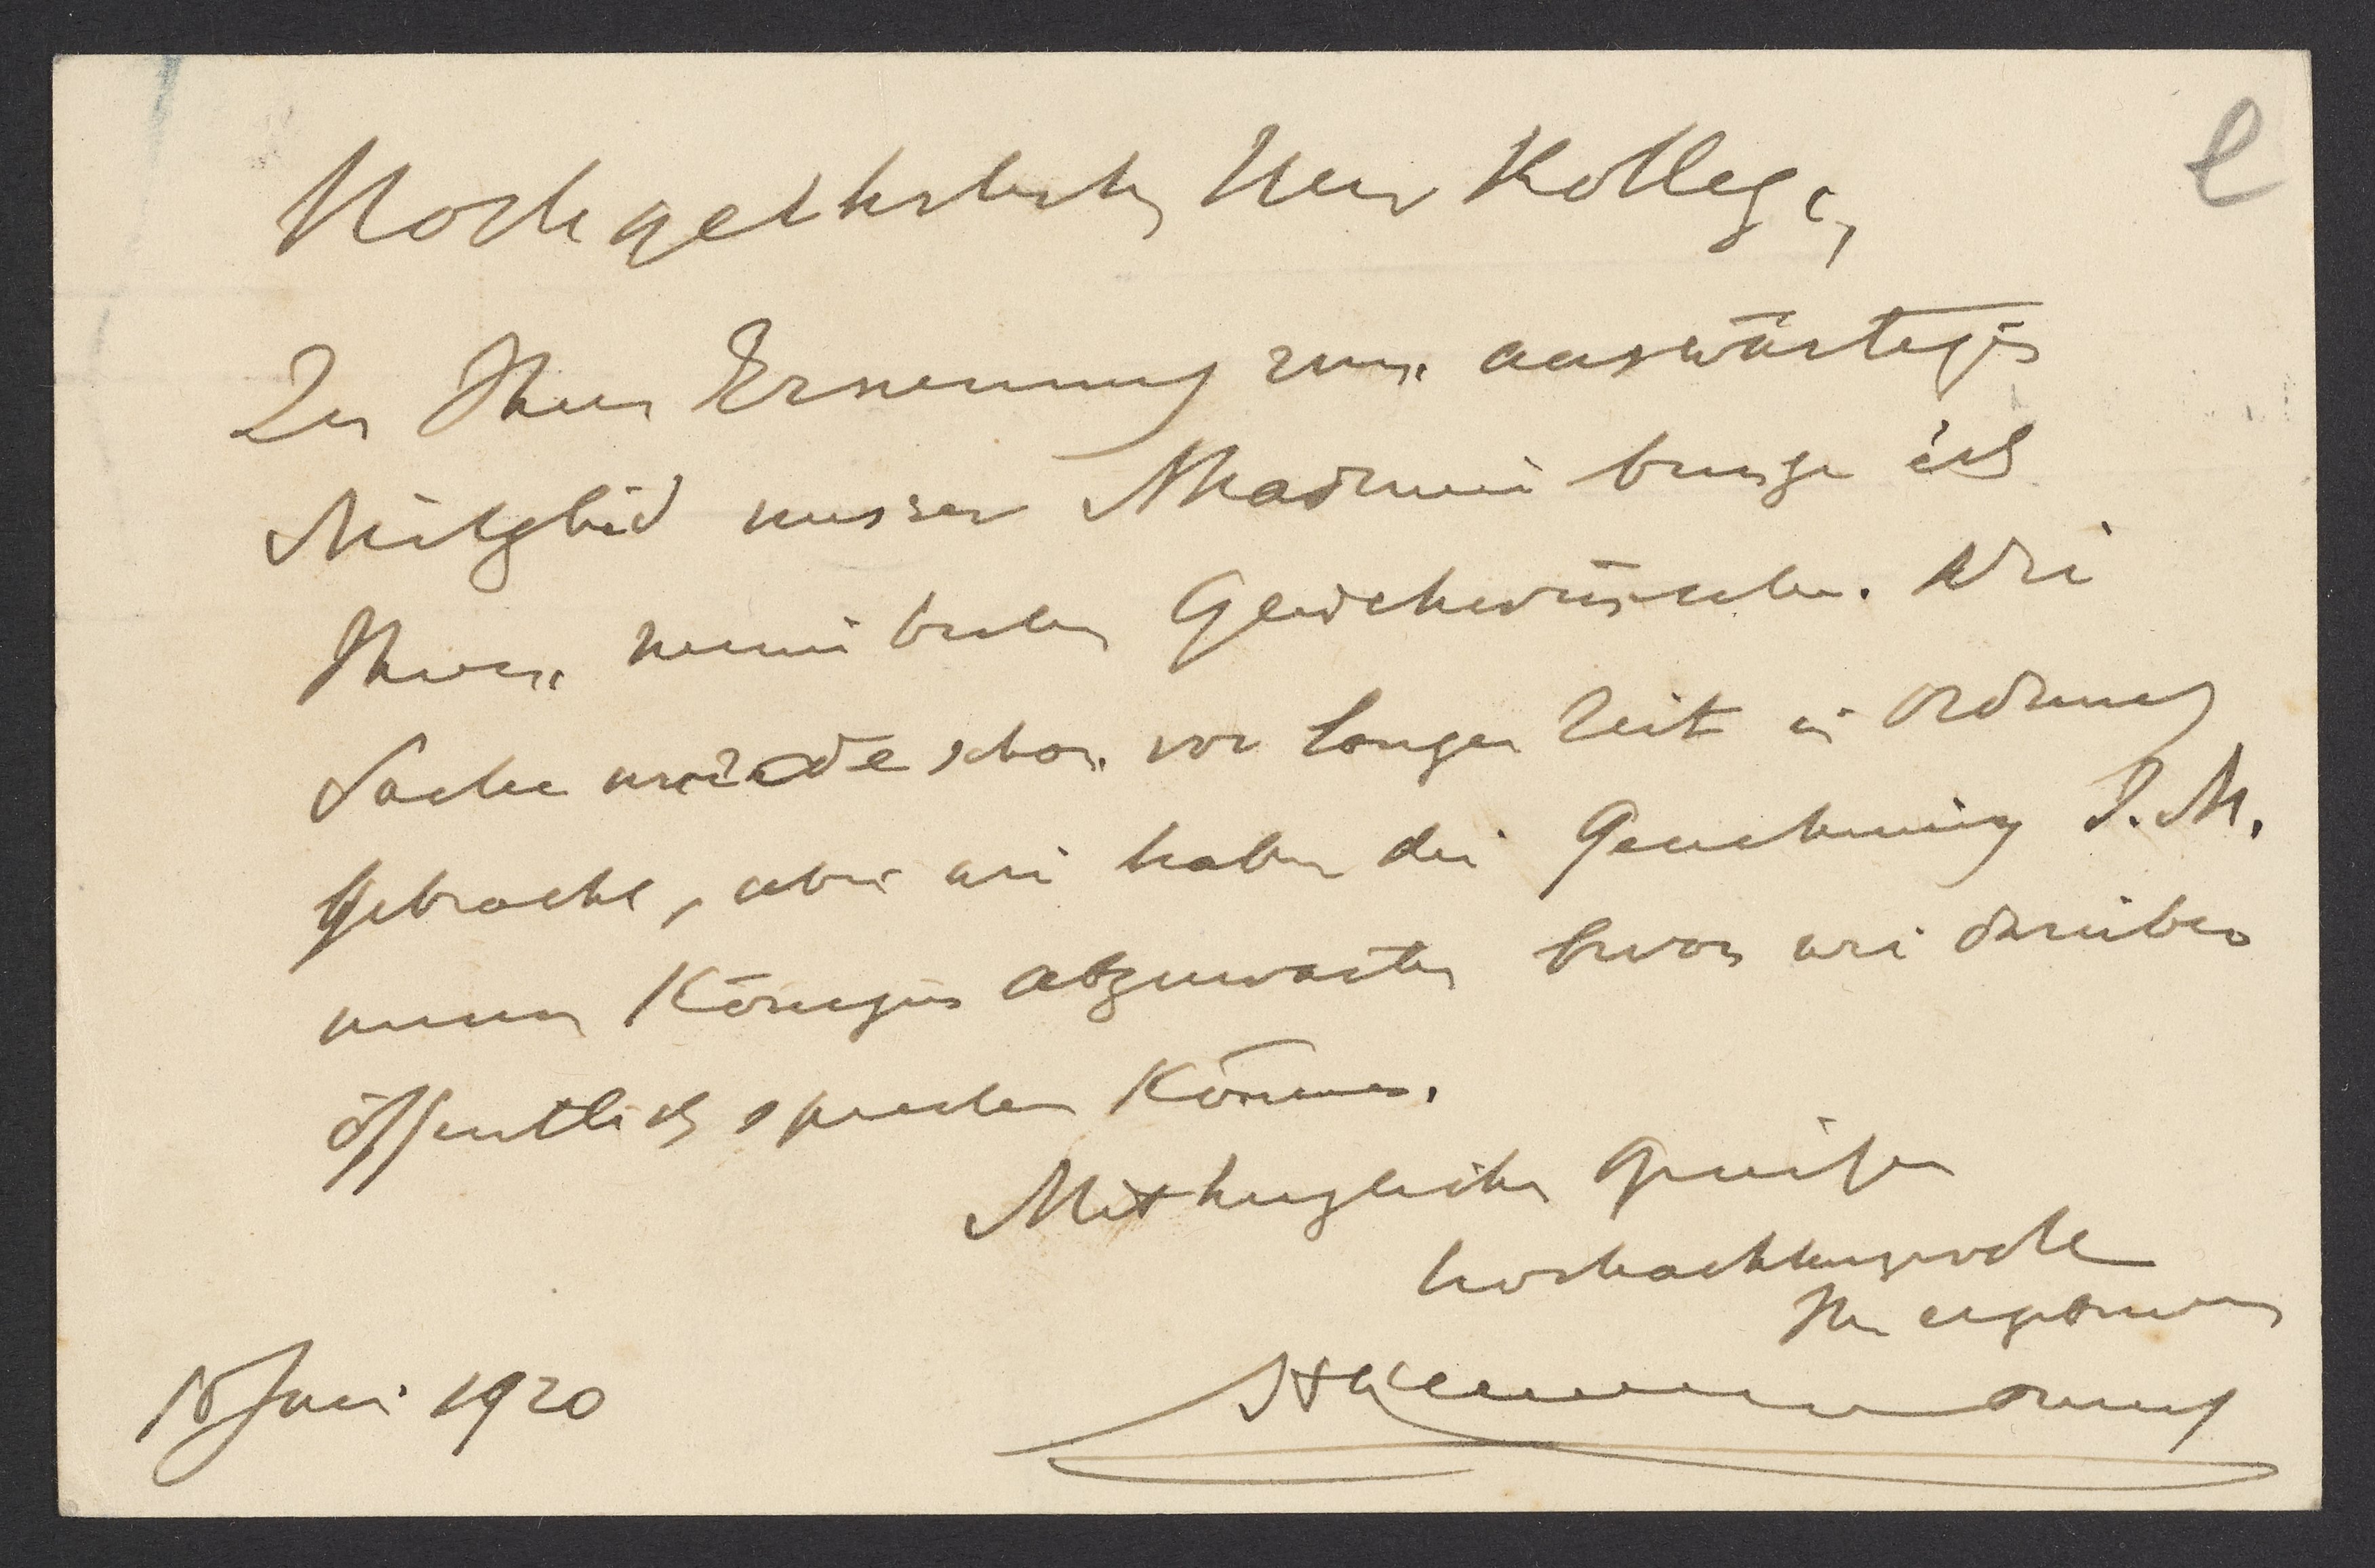 Hochgeehrtester Herr Kollege,
Zu Ihrer Ernennung zum auswärtigen
Mitglied unserer Akademie bringe ich
Ihnen meine besten Glückwünsche. Die
Sache wurde schon vor langer Zeit in Ordnung
gebracht, aber wir haben die Genehmigung I.M.
unserer Königin abzuwarten bevor wir darüber
öffentlich sprechen können.
Mit herzlichen Grüßen
hochachtungsvoll
Ihr ergebener
HKamerlingh Onnes
15 Juni 1920